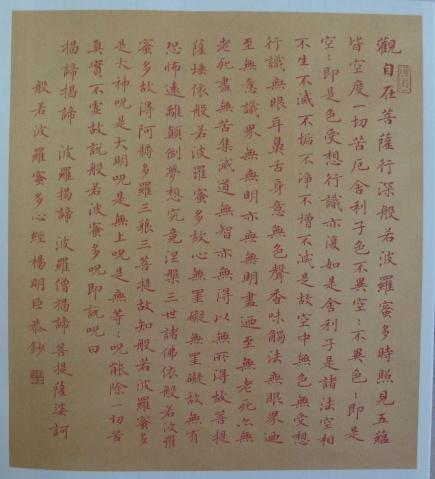 觀自在菩薩行深般若波羅蜜多時照見五蘊
皆空度一切苦厄舍利子色不異空〻不異色〻即是
空〻即是色受想行識亦復如是舍利子是諸法空相
不生不滅不垢不净不增不減是故空中無色無受想
行識無眼耳鼻舌身意無色聲香味觸法無眼界迺
至無意識界無無明亦無無明盡迺至無老死亦無
老死盡無苦集滅道無智亦無得以無所得故菩提
薩埵依般若波羅蜜多故心無罣礙無罣礙故無有
恐怖遠離顛倒夢想究竟涅槃三世諸佛依般若波羅
蜜多故得阿耨多羅三藐三菩提故知般若波羅蜜多
是大神咒是大明咒是無上咒是無等〻咒能除一切苦
真實不虛故說般若波羅蜜多咒即說咒曰
揭諦揭諦 波羅揭諦 波羅僧揭諦 菩提薩婆訶
般若波羅蜜多心經 楊明臣恭鈔